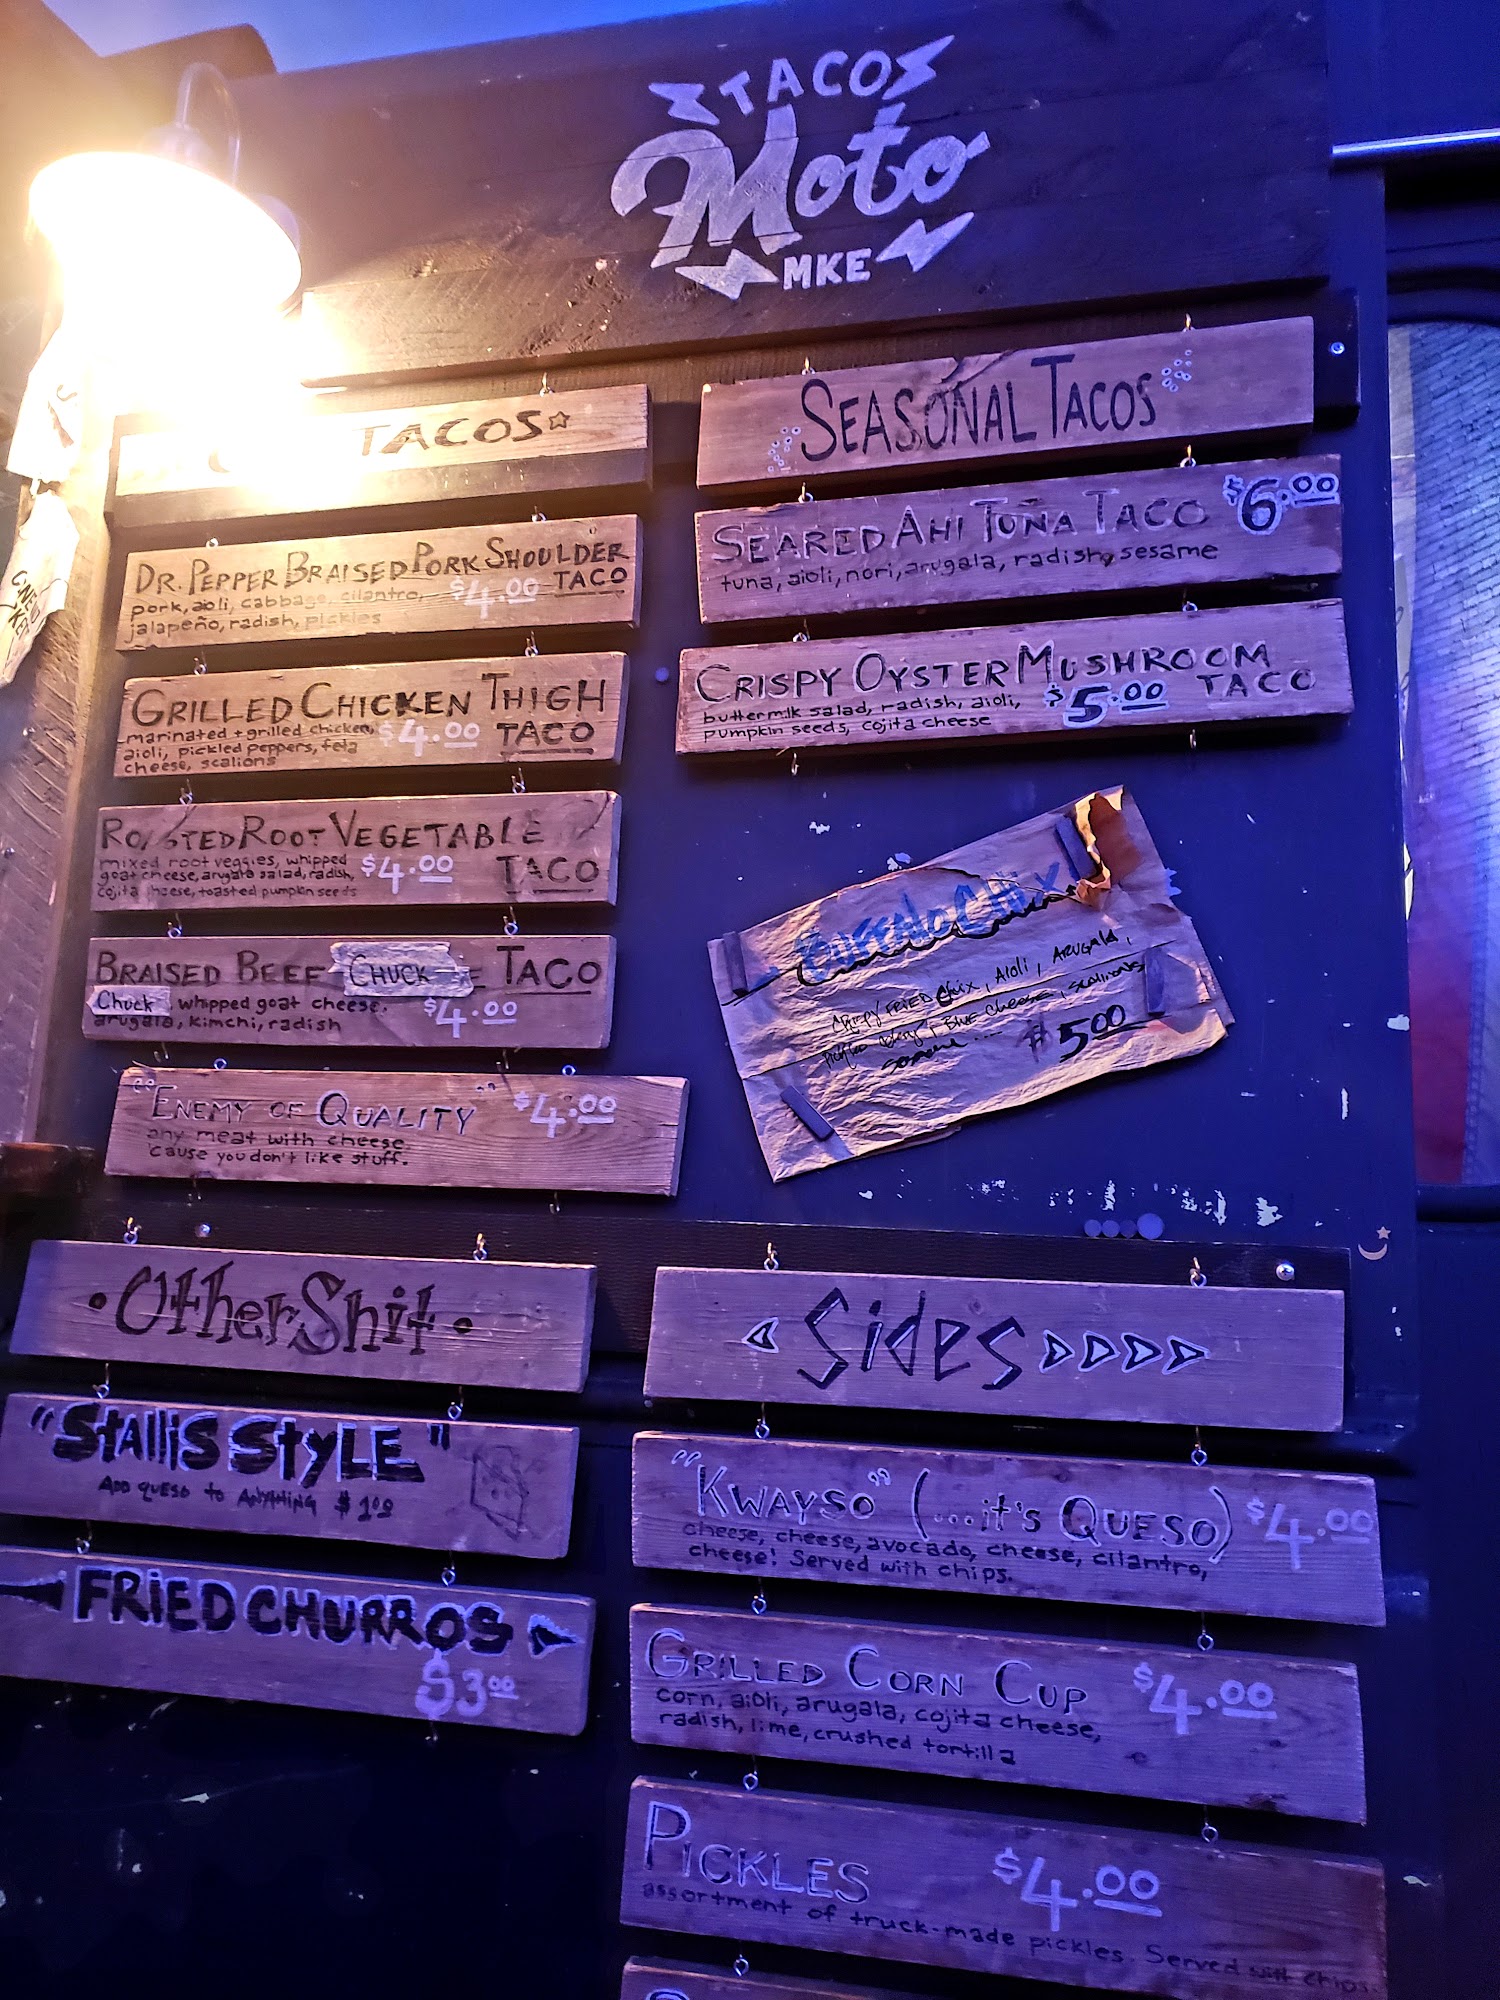 TACOS
Moto
MKE
TACOS
DR. PEPPER BRAISED PORK SHOULDER
TACO
pork, aioli, cabbage, cilantro,
$4.00
jalapeño, radish, pickles
GRILLED CHICKEN THIGH
TACO
marinated + grilled chicken,
$4.00
aioli, pickled peppers, feta
cheese, scalions
ROASTED ROOT VEGETABLE
TACO
mixed root veggies, whipped
$4.00
goat cheese, arugala salad, radish,
cojita cheese, toasted pumpkin seeds
BRAISED BEEF CHUCK TACO
Chuck, whipped goat cheese,
$4.00
arugala, kimchi, radish
"ENEMY OF QUALITY" $4.00
any meat with cheese
'cause you don't like stuff.
SEASONAL TACOS
SEARED AHI TUÑA TACO $6.00
tuna, aioli, nori, arugala, radish, sesame
CRISPY OYSTER MUSHROOM
TACO
buttermilk salad, radish, aioli,
$5.00
pumpkin seeds, cojita cheese
BUFFALO CHIX
CRISPY FRIED CHIX, AIOLI, ARUGALA,
BLUE CHEESE, SCALIONS
$5.00
Other Shit
"StalliS StyLE"
ADD QUESO to ANYTHING $1.00
FRiED CHURROS
$3.00
Sides
"KWAYSO" (...it's QUESO) $4.00
cheese, cheese, avocado, cheese, cilantro,
cheese! Served with chips.
GRILLED CORN CUP $4.00
corn, aioli, arugala, cojita cheese,
radish, lime, crushed tortilla
PICKLES $4.00
assortment of truck-made pickles. Served with chips.